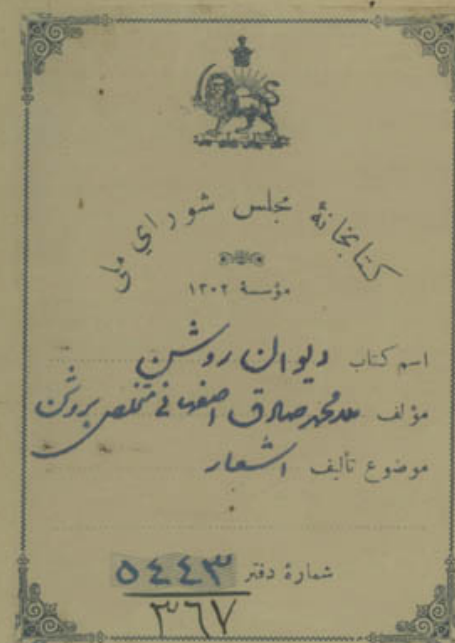 کتابخانهٔ مجلس شورای ملی
مؤسسهٔ ۱۳۰۲
اسم کتاب دیوان روشن
مؤلف محمدصادق اصفهانی متخلص بروشن
موضوع تألیف اشعار
شمارهٔ دفتر ۵۴۴۳
۳۶۷